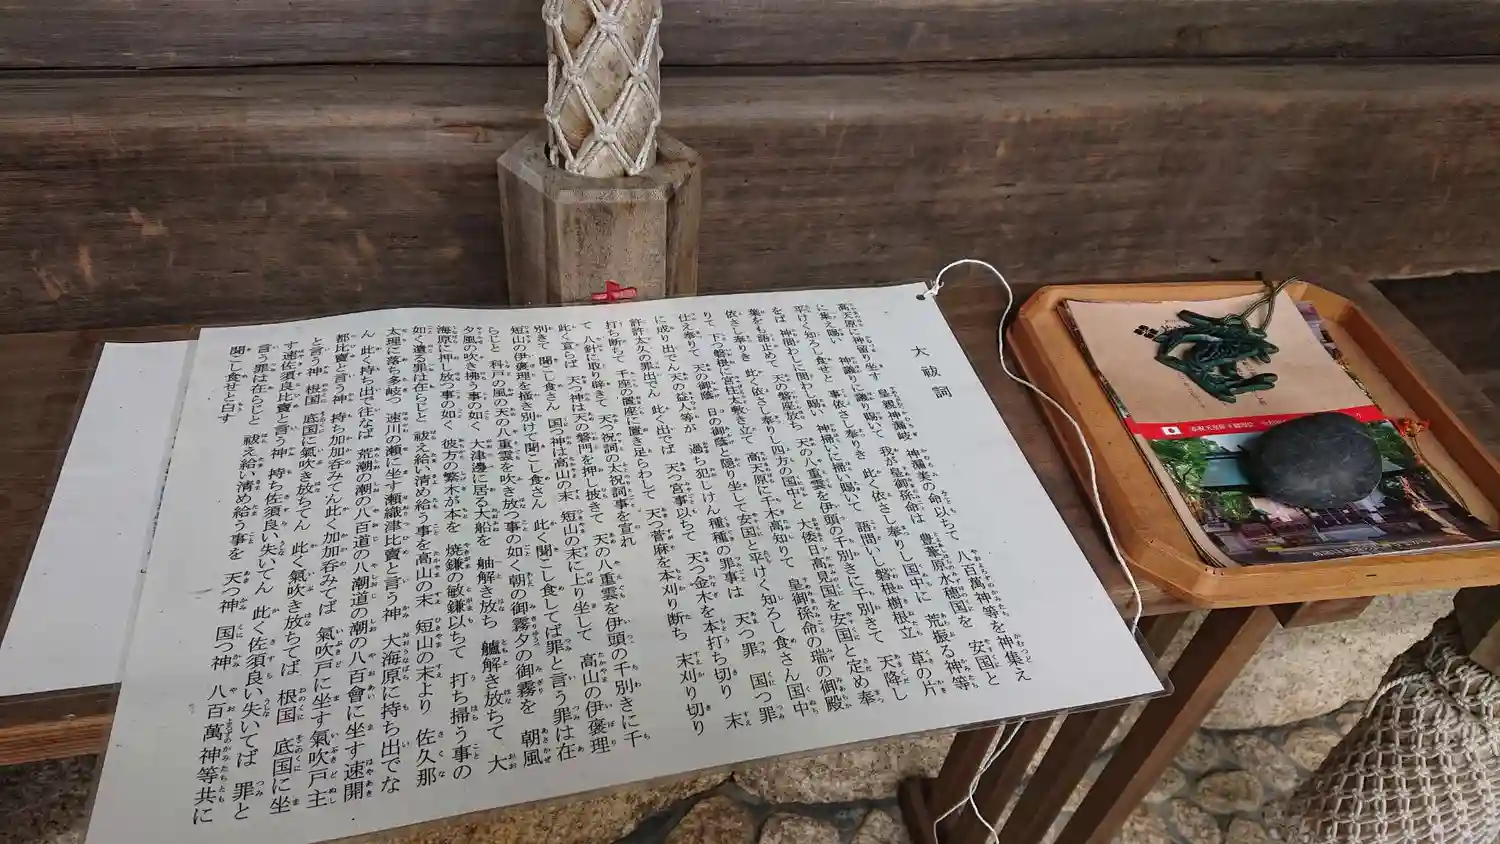 大祓詞
高天原に神留り坐す 皇親神漏岐 神漏美の命以ちて 八百萬神等を神集え
に集え賜い 神議りに議り賜いて 我が皇御孫命は 豊葦原水穂国を 安国と
平けく知ろし食せと 事依さし奉りき 此く依さし奉りし国中に 荒振る神等
をば 神問わしに問わし賜い 神掃に掃い賜いて 語問いし磐根樹根立 草の片
葉をも語止めて 天の磐座放ち 天の八重雲を伊頭の千別きに千別きて 天降し
依さし奉りき 此く依さし奉りし四方の国中と 大倭日高見国を安国と定め奉
りて 下つ磐根に宮柱太敷き立て 高天原に千木高知りて 皇御孫命の瑞の御殿
仕え奉りて 天の御蔭 日の御蔭と隠り坐して 安国と平けく知ろし食さん国中
に成り出でん天の益人等が 過ち犯しけん種種の罪事は 天つ罪 国つ罪
許許太久の罪出でん 此く出でば 天つ宮事以ちて 天つ金木を本打ち切り 末
打ち断ちて 千座の置座に置き足らわして 天つ菅麻を本刈り断ち 末刈り切り
て 八針に取り辟きて 天つ祝詞の太祝詞事を宣れ
此く宣らば 天つ神は天の磐門を押し披きて 天の八重雲を伊頭の千別きに千
別きて 聞こし食さん 国つ神は高山の末 短山の末に上り坐して 高山の伊褒理
短山の伊褒理を掻き別けて聞こし食さん 此く聞こし食してば 罪と言う罪は在
らじと 科戸の風の天の八重雲を吹き放つ事の如く 朝の御霧 夕の御霧を 朝風
夕風の吹き拂う事の如く 大津邊に居る大船を 舳解き放ち 艫解き放ちて 大
海原に押し放つ事の如く 彼方の繁木が本を 焼鎌の敏鎌以ちて 打ち掃う事の
如く 遺る罪は在らじと 祓え給い清め給う事を 高山の末 短山の末より 佐久那
太理に落ち多岐つ 速川の瀬に坐す瀬織津比賣と言う神 大海原に持ち出でな
ん 此く持ち出で往なば 荒潮の潮の八百道の八潮道の潮の八百會に坐す速開
都比賣と言う神 持ち加加呑みてん 此く加加呑みてば 氣吹戸に坐す氣吹戸主
と言う神 根国 底国に氣吹き放ちてん 此く氣吹き放ちてば 根国 底国に坐
す速佐須良比賣と言う神 持ち佐須良い失いてん 此く佐須良い失いてば 罪と
言う罪は在らじと 祓え給い清め給う事を 天つ神 国つ神 八百萬神等共に
聞こし食せと白す